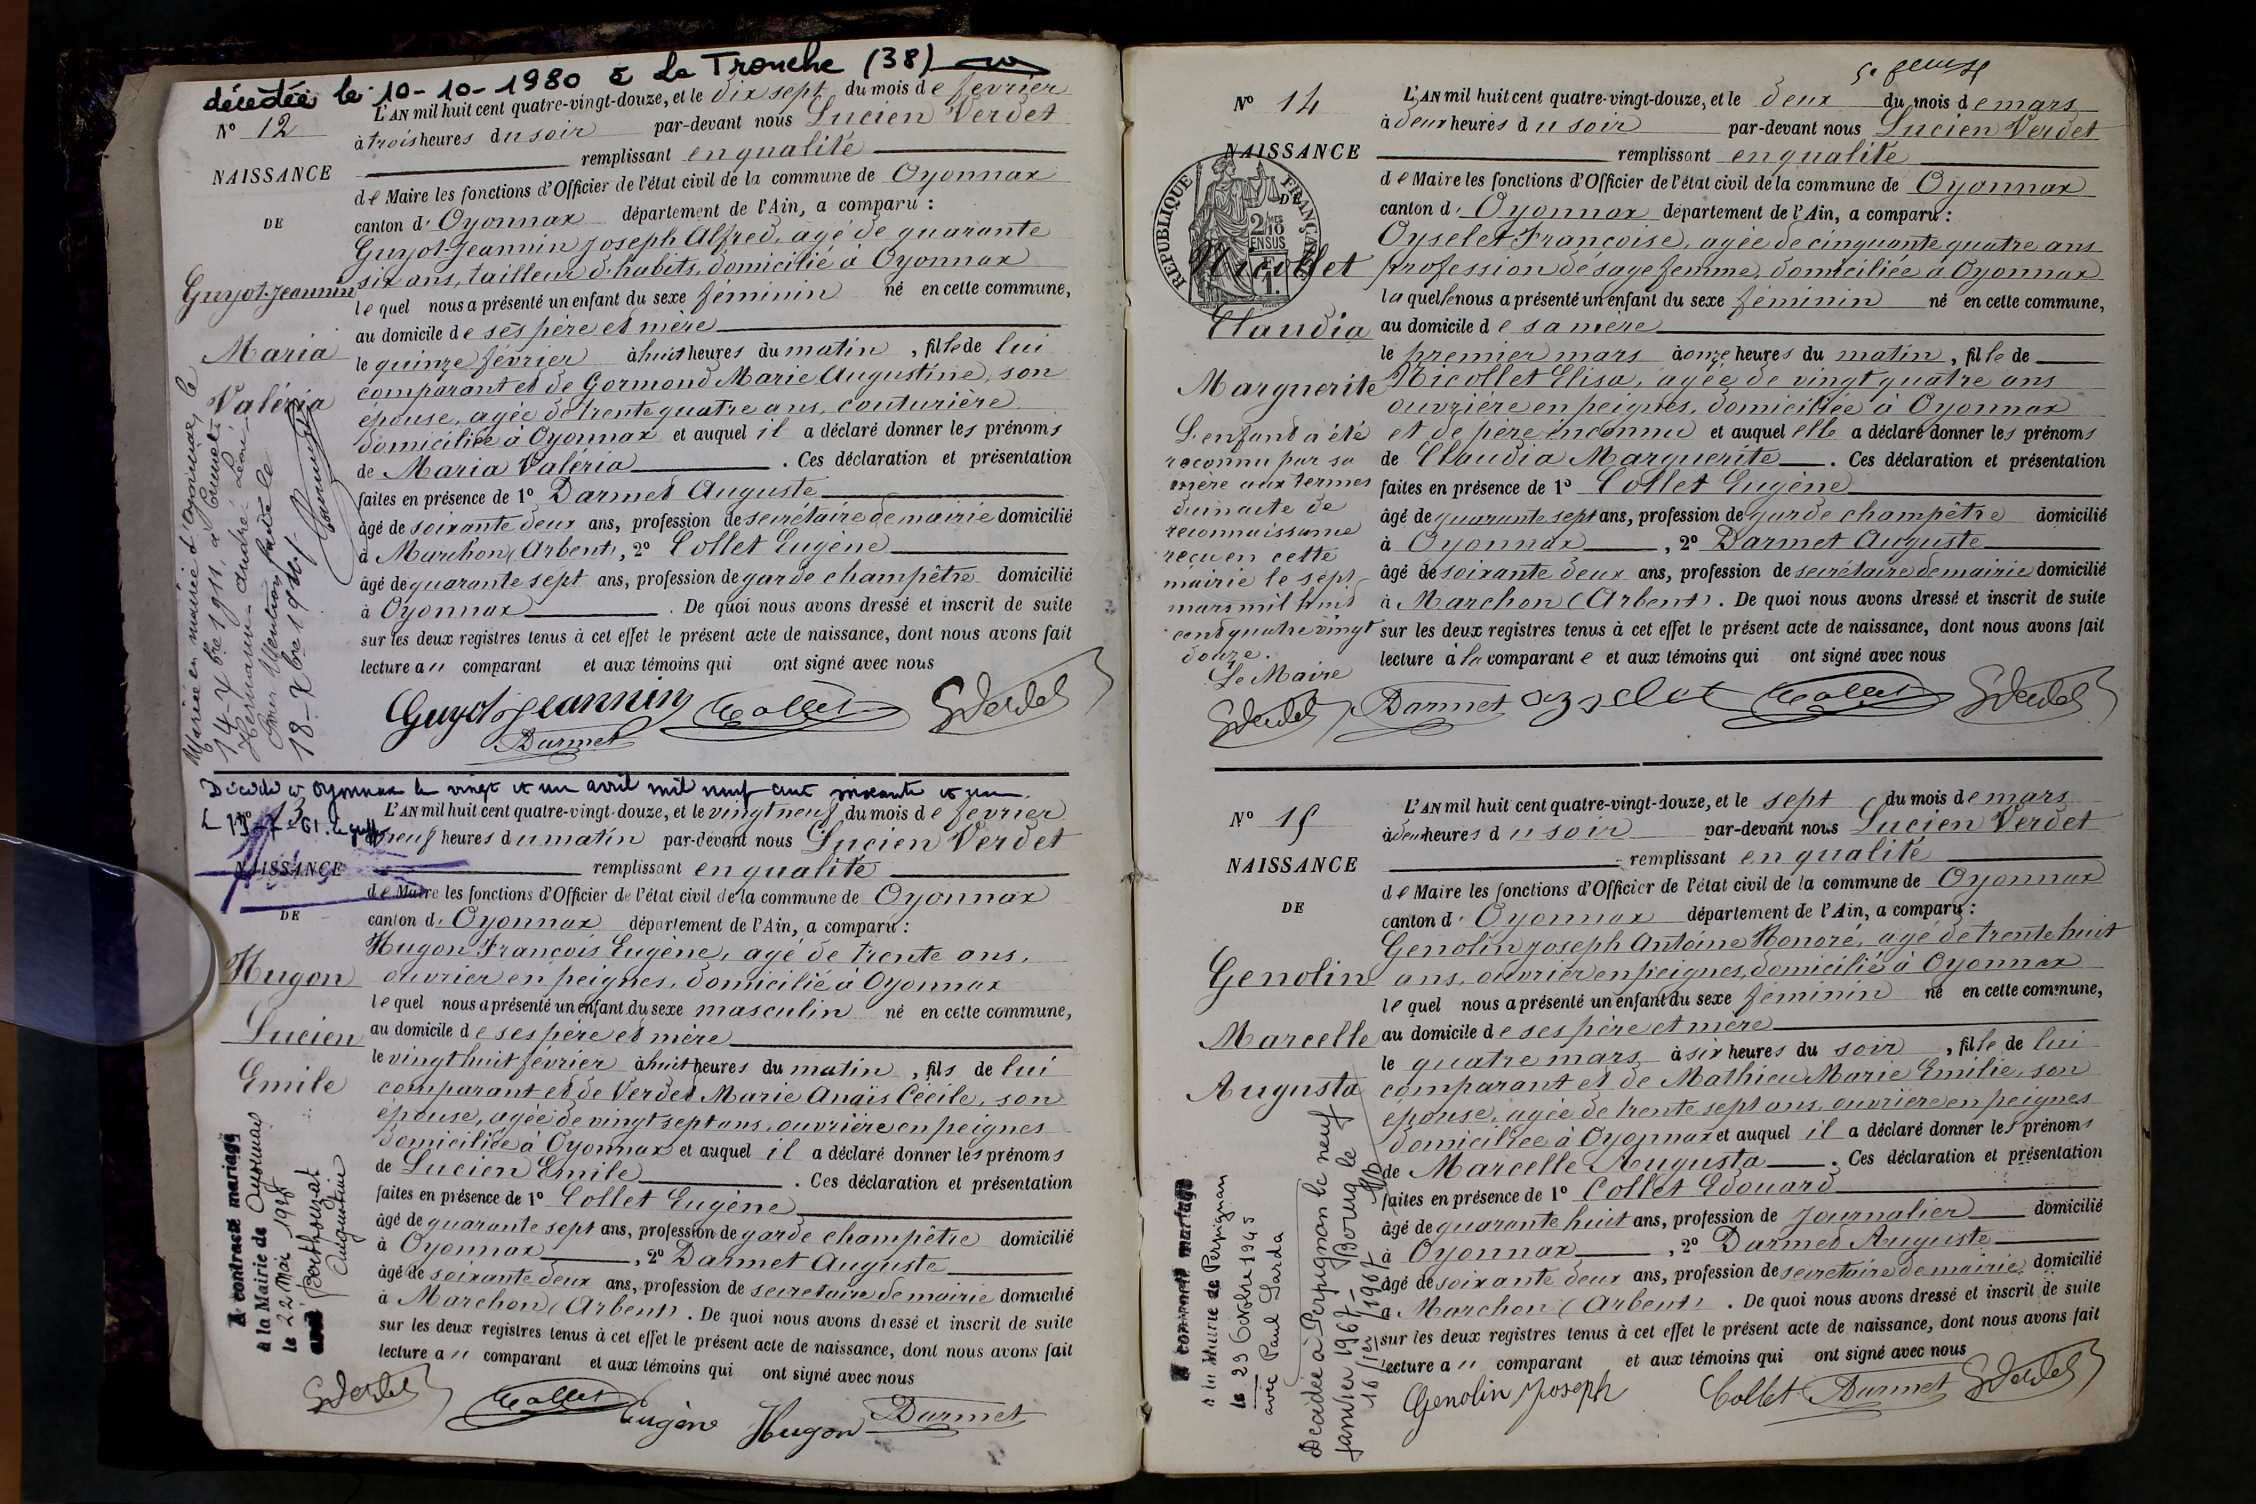 décédée le 10-10-1980 à La Tronche (38)
N° 12
NAISSANCE
DE
Guyot-Jeannin
Maria
Valéria
Mariée en mairie d'Oyonnax le
14-Xbre 1911, à
Hermann André
Pour Mention faite le
18-Xbre 1911
L'AN mil huit cent quatre-vingt-douze, et le dix sept du mois de février
à trois heures du soir par-devant nous Lucien Verdet
remplissant en qualité
de Maire les fonctions d'Officier de l'état civil de la commune de Oyonnax
canton d'Oyonnax département de l'Ain, a comparu :
Guyot-Jeannin Joseph Alfred, agé de quarante
six ans, tailleur d'habits, domicilié à Oyonnax
lequel nous a présenté un enfant du sexe féminin né en cette commune,
au domicile de ses père et mère
le quinze février à huit heures du matin, fille de lui
comparant et de Gormond Marie Augustine, son
épouse, agée de trente quatre ans, couturière
domiciliée à Oyonnax et auquel il a déclaré donner les prénoms
de Maria Valéria. Ces déclaration et présentation
faites en présence de 1° Darmet Auguste
âgé de soixante deux ans, profession de secrétaire de mairie domicilié
à Marchon (Arbent), 2° Collet Eugène
âgé de quarante sept ans, profession de garde champêtre domicilié
à Oyonnax. De quoi nous avons dressé et inscrit de suite
sur les deux registres tenus à cet effet le présent acte de naissance, dont nous avons fait
lecture au comparant et aux témoins qui ont signé avec nous
Guyot-Jeannin Collet Verdet
Darmet
Décédé à Oyonnax le vingt et un avril mil neuf cent soixante et un.
N° 13
NAISSANCE
DE
Hugon
Lucien
Emile
A contracté mariage
à la Mairie de Oyonnax
le 22 Mai
avec
Augustine
L'AN mil huit cent quatre-vingt-douze, et le vingt neuf du mois de février
à neuf heures du matin par-devant nous Lucien Verdet
remplissant en qualité
de Maire les fonctions d'Officier de l'état civil de la commune de Oyonnax
canton d'Oyonnax département de l'Ain, a comparu :
Hugon François Eugène, agé de trente ans,
ouvrier en peignes, domicilié à Oyonnax
lequel nous a présenté un enfant du sexe masculin né en cette commune,
au domicile de ses père et mère
le vingt huit février à huit heures du matin, fils de lui
comparant et de Verdet Marie Anaïs Cécile, son
épouse, agée de vingt sept ans, ouvrière en peignes
domiciliée à Oyonnax et auquel il a déclaré donner les prénoms
de Lucien Emile. Ces déclaration et présentation
faites en présence de 1° Collet Eugène
âgé de quarante sept ans, profession de garde champêtre domicilié
à Oyonnax, 2° Darmet Auguste
âgé de soixante deux ans, profession de secretaire de mairie domicilié
à Marchon (Arbent). De quoi nous avons dressé et inscrit de suite
sur les deux registres tenus à cet effet le présent acte de naissance, dont nous avons fait
lecture au comparant et aux témoins qui ont signé avec nous
Verdet Collet Eugène Hugon Darmet
N° 14
NAISSANCE
DE
RÉPUBLIQUE FRANÇAISE
2/10 EN SUS
Nicollet
Claudia
Marguerite
L'enfant a été
reconnu par sa
mère aux termes
d'un acte de
reconnaissance
reçu en cette
mairie le sept
mars mil huit
cent quatre vingt
douze.
Le Maire
Verdet
L'AN mil huit cent quatre-vingt-douze, et le deux du mois de mars
à deux heures du soir par-devant nous Lucien Verdet
remplissant en qualité
de Maire les fonctions d'Officier de l'état civil de la commune de Oyonnax
canton d'Oyonnax département de l'Ain, a comparu :
Oyselet Françoise, agée de cinquante quatre ans
profession de sage femme, domiciliée à Oyonnax
laquelle nous a présenté un enfant du sexe féminin né en cette commune,
au domicile de sa mère
le premier mars à onze heures du matin, fille de
Nicollet Elisa, agée de vingt quatre ans
ouvrière en peignes, domiciliée à Oyonnax
et de père inconnu et auquel elle a déclaré donner les prénoms
de Claudia Marguerite. Ces déclaration et présentation
faites en présence de 1° Collet Eugène
âgé de quarante sept ans, profession de garde champêtre domicilié
à Oyonnax, 2° Darmet Auguste
âgé de soixante deux ans, profession de secrétaire de mairie domicilié
à Marchon (Arbent). De quoi nous avons dressé et inscrit de suite
sur les deux registres tenus à cet effet le présent acte de naissance, dont nous avons fait
lecture à la comparante et aux témoins qui ont signé avec nous
Darmet Oyselet Collet Verdet
N° 15
NAISSANCE
DE
Genolin
Marcelle
Augusta
A contracté mariage
à la Mairie de Perpignan
le 29 Octobre 1945
avec Paul Sarda
Décédée à Perpignan le neuf
janvier 1967 - Bourg le
16 janvier 1967
L'AN mil huit cent quatre-vingt-douze, et le sept du mois de mars
à deux heures du soir par-devant nous Lucien Verdet
remplissant en qualité
de Maire les fonctions d'Officier de l'état civil de la commune de Oyonnax
canton d'Oyonnax département de l'Ain, a comparu :
Genolin Joseph Antoine Honoré, agé de trente huit
ans, ouvrier en peignes, domicilié à Oyonnax
lequel nous a présenté un enfant du sexe féminin né en cette commune,
au domicile de ses père et mère
le quatre mars à six heures du soir, fille de lui
comparant et de Mathieu Marie Emilie, son
épouse, agée de trente sept ans, ouvrière en peignes
domiciliée à Oyonnax et auquel il a déclaré donner les prénoms
de Marcelle Augusta. Ces déclaration et présentation
faites en présence de 1° Collet Edouard
âgé de quarante huit ans, profession de journalier domicilié
à Oyonnax, 2° Darmet Auguste
âgé de soixante deux ans, profession de secretaire de mairie domicilié
à Marchon (Arbent). De quoi nous avons dressé et inscrit de suite
sur les deux registres tenus à cet effet le présent acte de naissance, dont nous avons fait
lecture au comparant et aux témoins qui ont signé avec nous
Genolin Joseph Collet Darmet Verdet